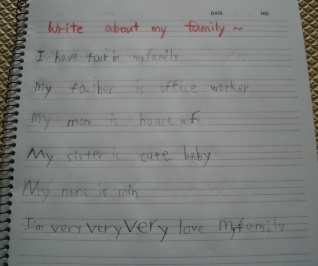 DATE NO.
Write about my family ~
I have four in my family
My father is office worker
My mom is house wife
My sister is cute baby
My name is min
I'm very very very love my family